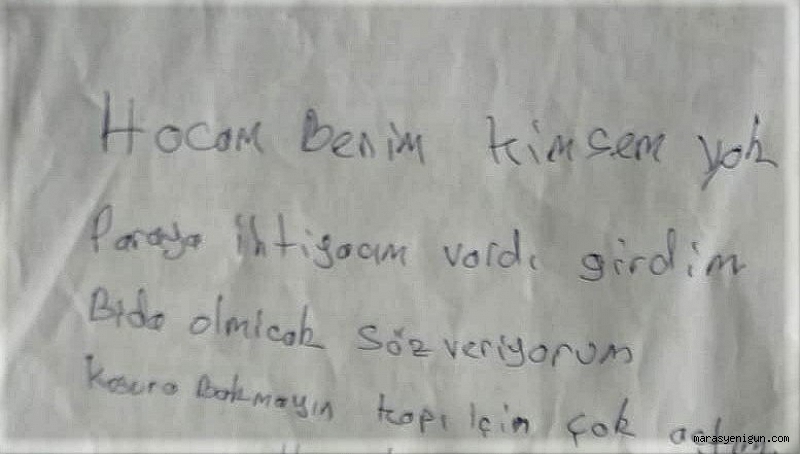 Hocam Benim kimsem yok
Paraya ihtiyacım vardı girdim
Bida olmicak söz veriyorum
Kusura Bakmayın kapı için çok
marasyenigun.com